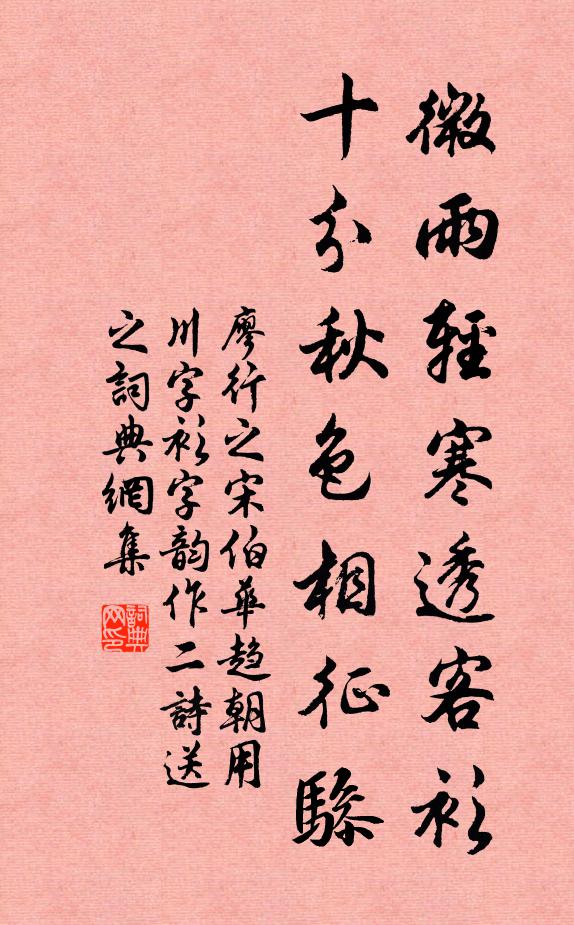 微雨輕寒透客衫
十分秋色相征驂
廖行之宋伯華趨朝用
川字衫字韵作二詩送
之詞典網集
詞典網印